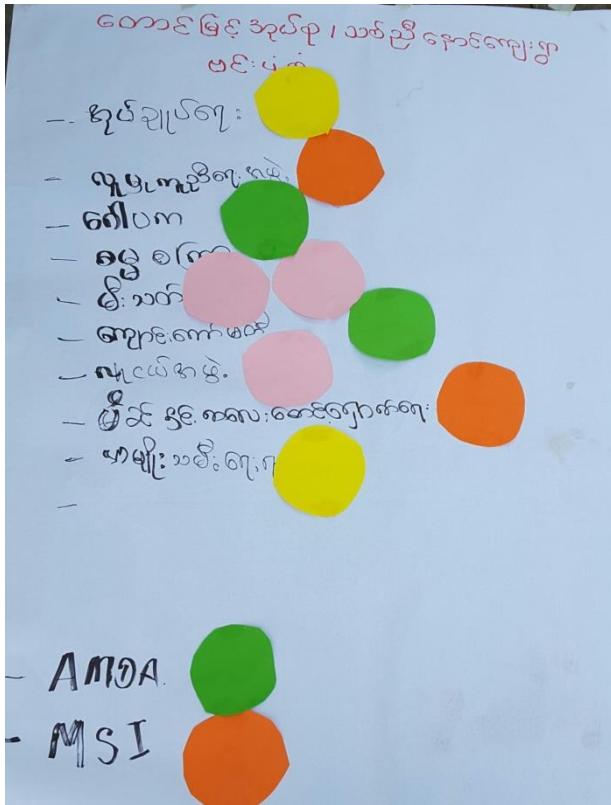 တောင်မြင့်အုပ်စု၊ သစ်ညီနောင်ကျေးရွာ
ဗင်းပုံစံ
- အုပ်ချုပ်ရေး
- လူမှုကူညီရေးအဖွဲ့
- ဂေါပက
- ဓမ္မစကြာ
- မီးသတ်
- ကျောင်းကော်မတီ
- လူငယ်အဖွဲ့
- မိခင်နှင့်ကလေးစောင့်ရှောက်ရေး
- အမျိုးသမီးရေးရာ
-
- AMDA
- MSI